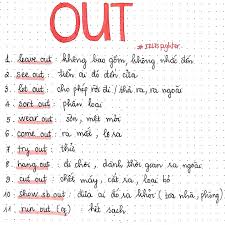 OUT
# IELTS fighter
1. leave out : không bao gồm, không nhắc đến
2. see out : tiễn ai đó đến cửa
3. let out : cho phép rời đi / thả ra, ra ngoài
4. sort out : phân loại
5. wear out : sờn, mệt mỏi
6. come out : ra mắt, lộ ra
7. try out : thử
8. hang out : đi chơi, dành thời gian ra ngoài
9. cut out : chết máy, cắt ra, loại bỏ
10. show sb out : đưa ai đó ra khỏi ( tòa nhà, phòng)
11. run out (of) : hết sạch